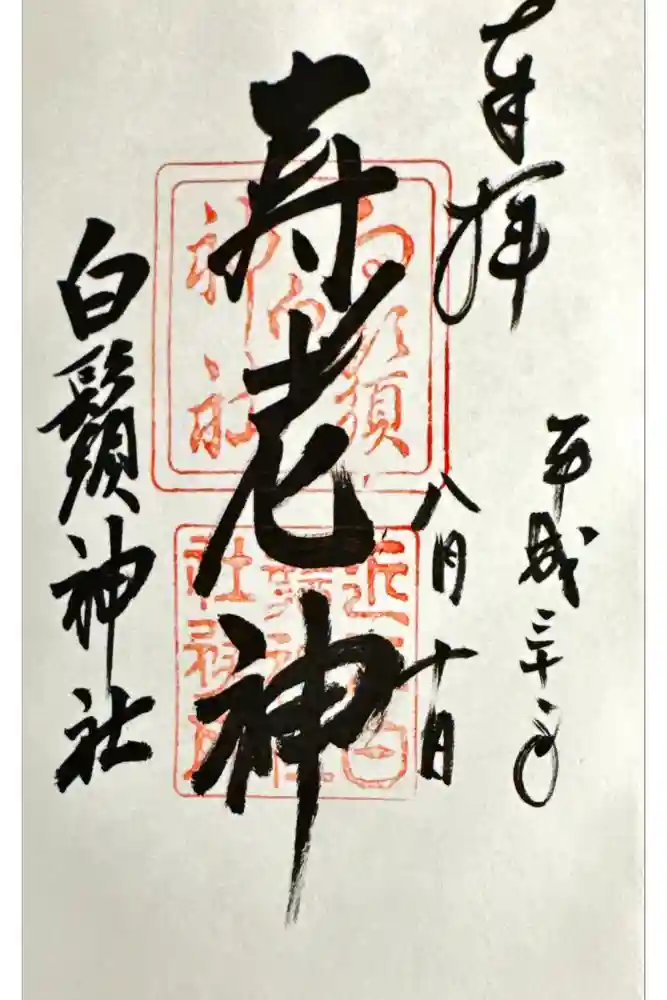 奉拝
平成三十年
八月十日
寿老神
白鬚神社
白鬚
神社
近江白
鬚神社
社務所印